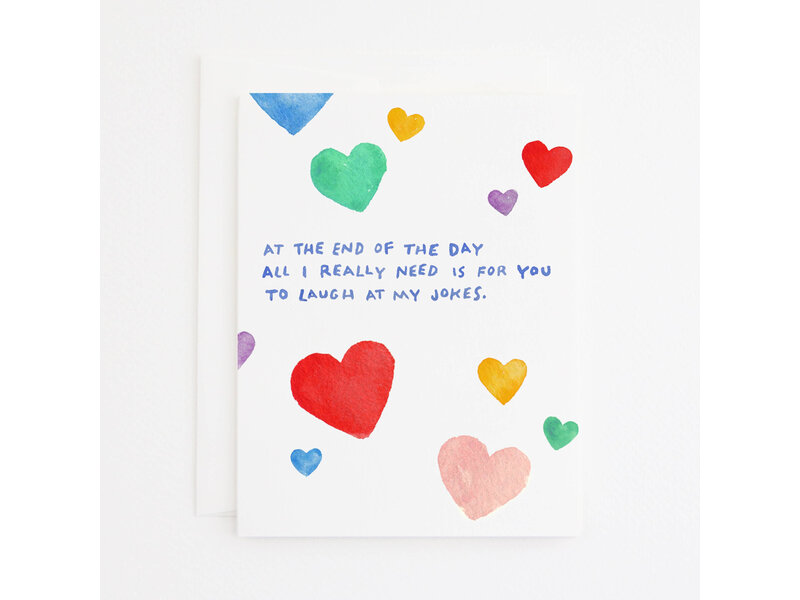 AT THE END OF THE DAY
ALL I REALLY NEED IS FOR YOU
TO LAUGH AT MY JOKES.